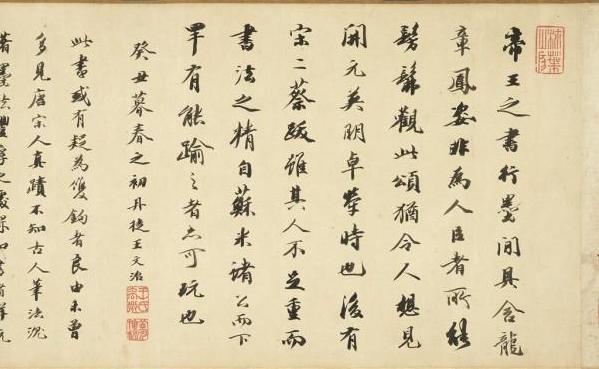 帝王之書行墨間具含龍
章鳳姿非為人臣者所能
髣髴觀此頌猶令人想見
開元英明卓犖時也後有
宋二蔡跋雖其人不足重而
書法之精自蘇米諸公而下
罕有能踰之者亦可玩也
癸丑暮春之初丹徒王文治
此書或有疑為雙鉤者良由未曾
多見唐宋人真蹟不知古人筆法沉
著墨法豐厚之處